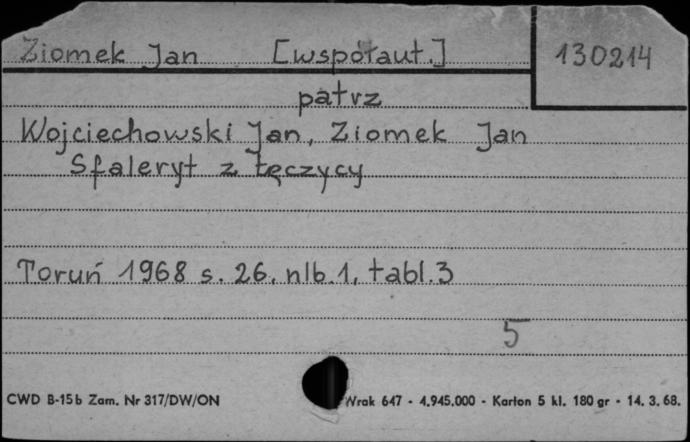 Ziomek Jan [współaut.] 130214
patrz
Wojciechowski Jan, Ziomek Jan
Sfaleryt z Łęczycy
Toruń 1968 s. 26, nlb.1, tabl.3
5
CWD B-15b Zam. Nr 317/DW/ON Wrak 647 - 4.945.000 - Karton 5 kl. 180 gr - 14. 3. 68.